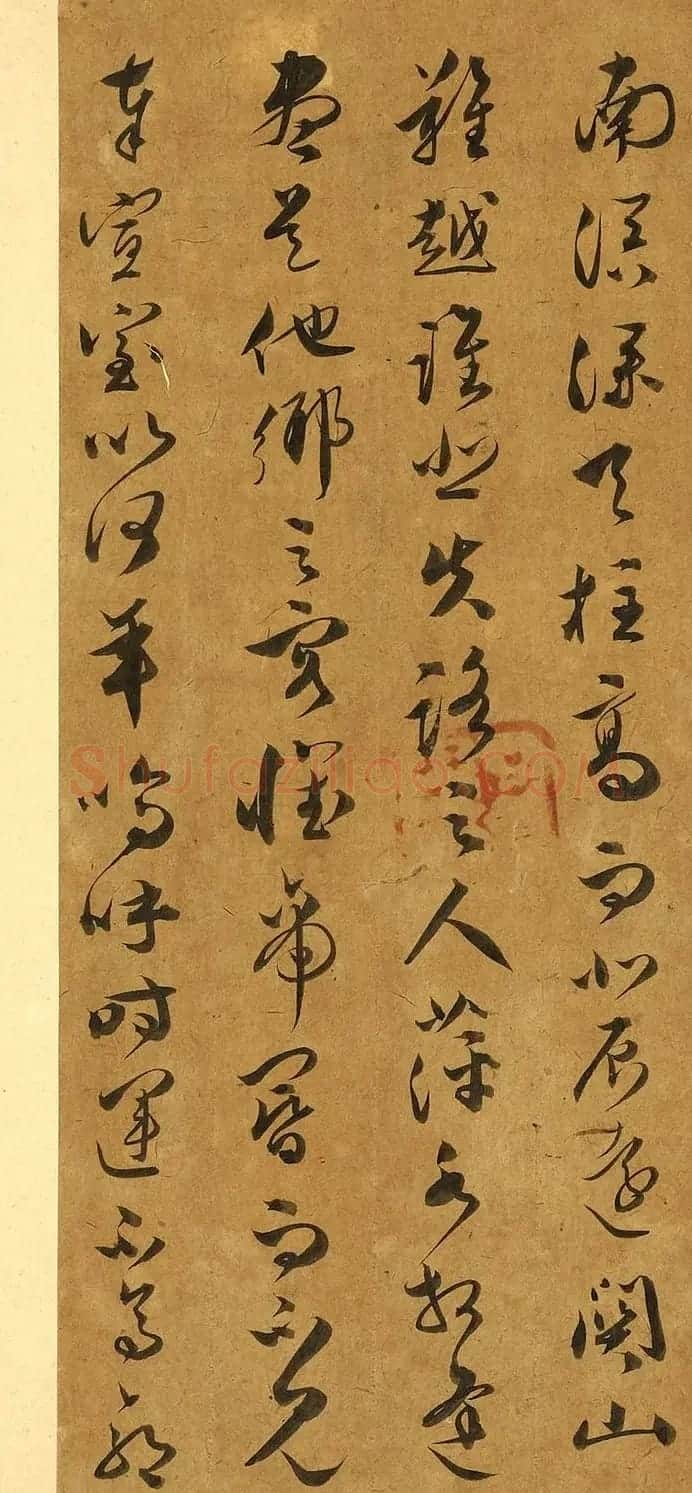 南溟深天柱高而北辰遠關山
難越誰悲失路之人萍水相逢
盡是他鄉之客懷帝閽而不見
奉宣室以何年嗚呼時運不齊命
Shufaziliao.COM